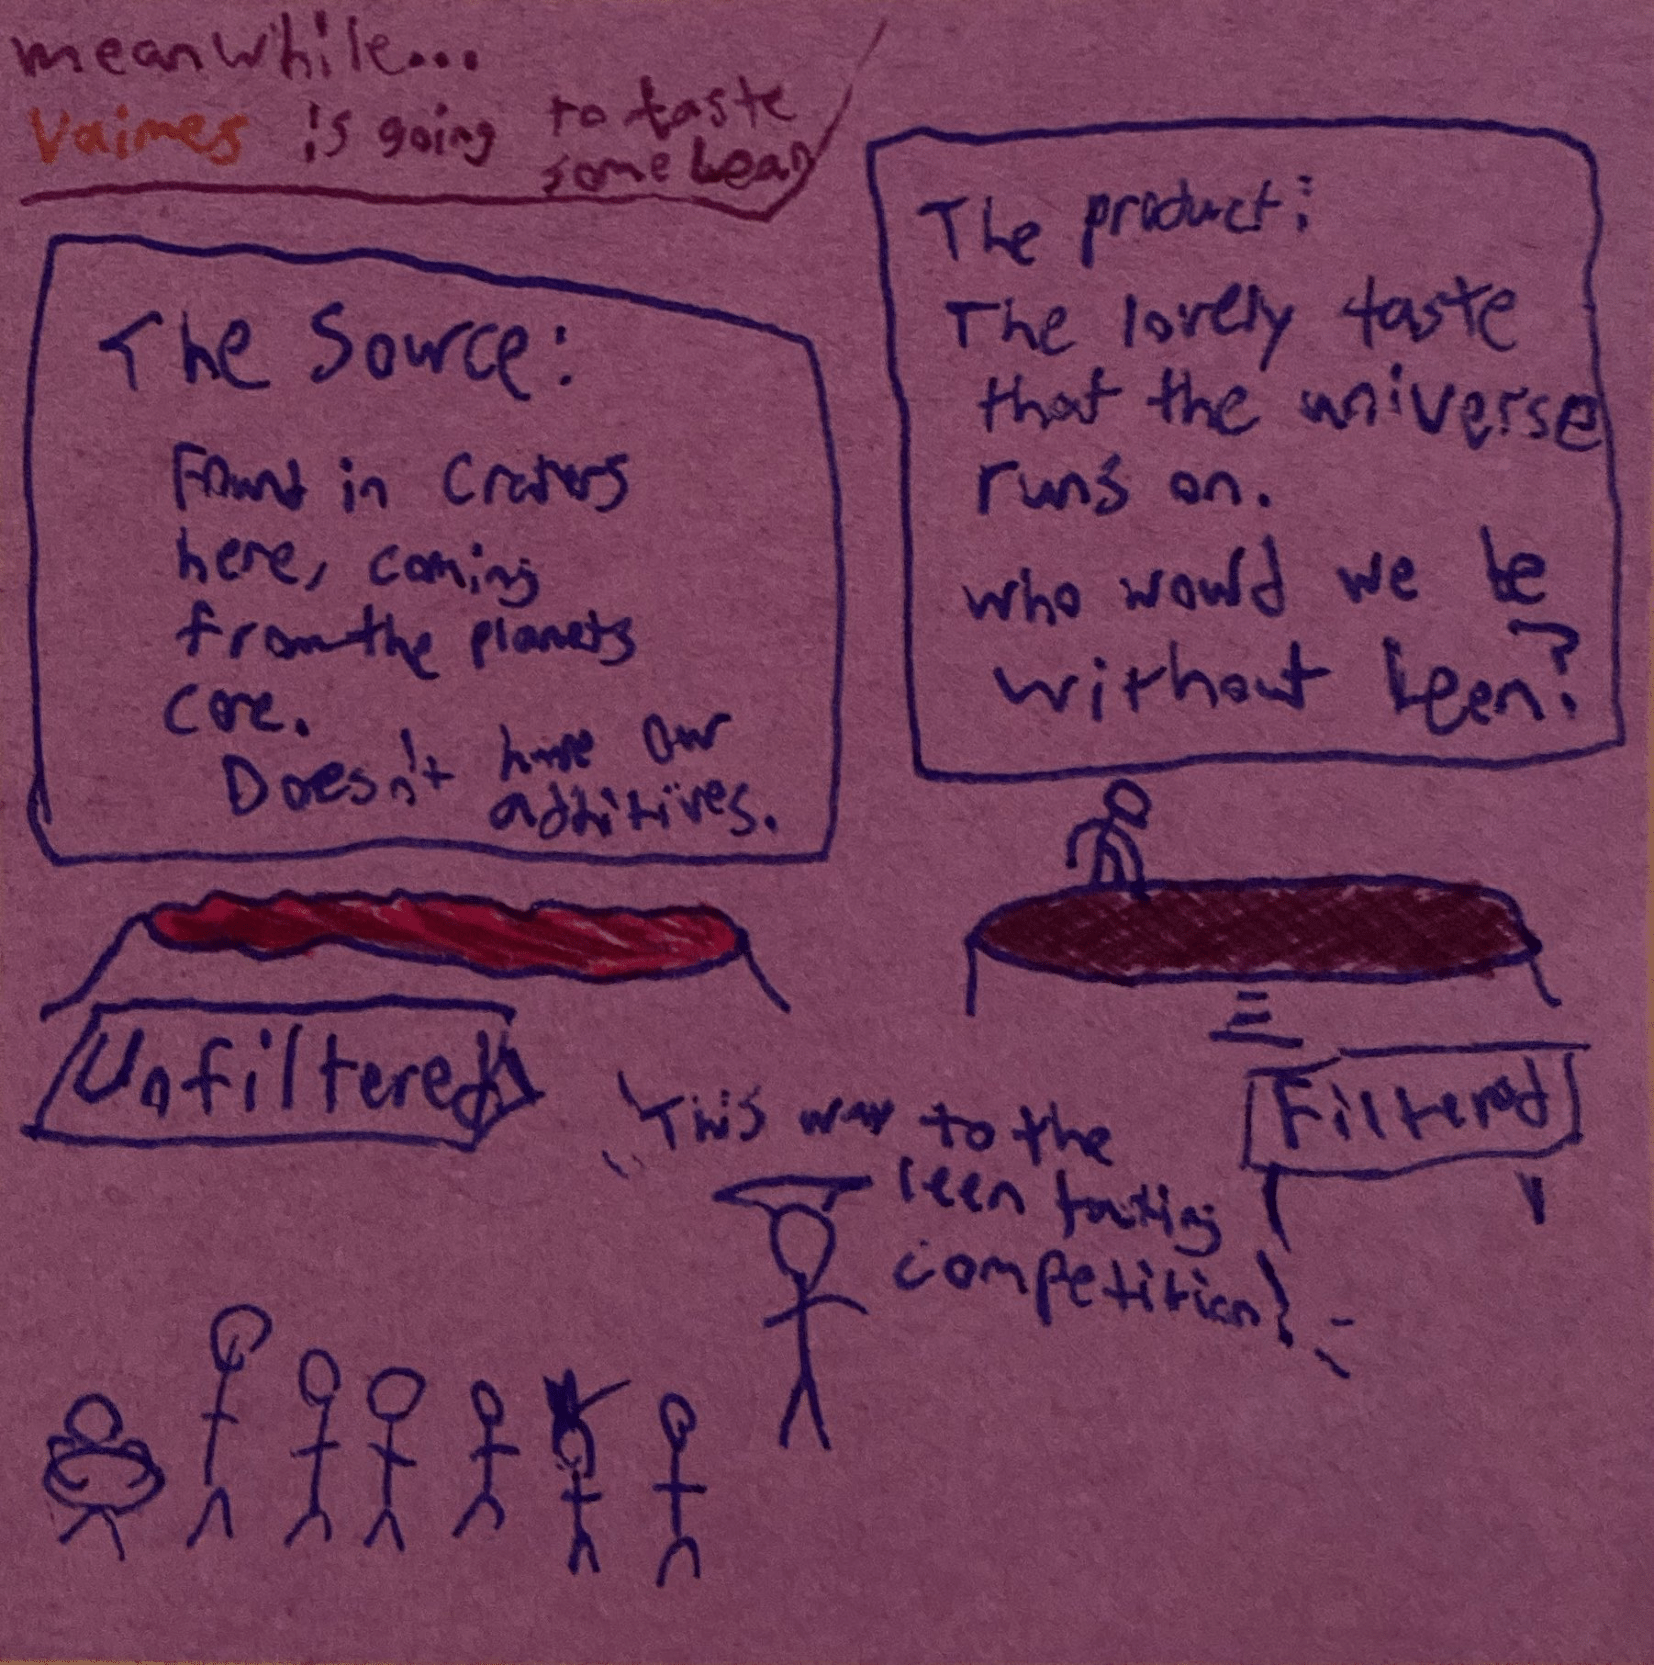 meanwhile...
Vaimes is going to taste
some lean
The Source:
Found in Craters
here, coming
from the planets
core.
Doesn't have our
additives.
The product:
The lovely taste
that the universe
runs on.
who would we be
without leen?
Unfiltered
Filtered
"This way to the
leen tasting
competition!